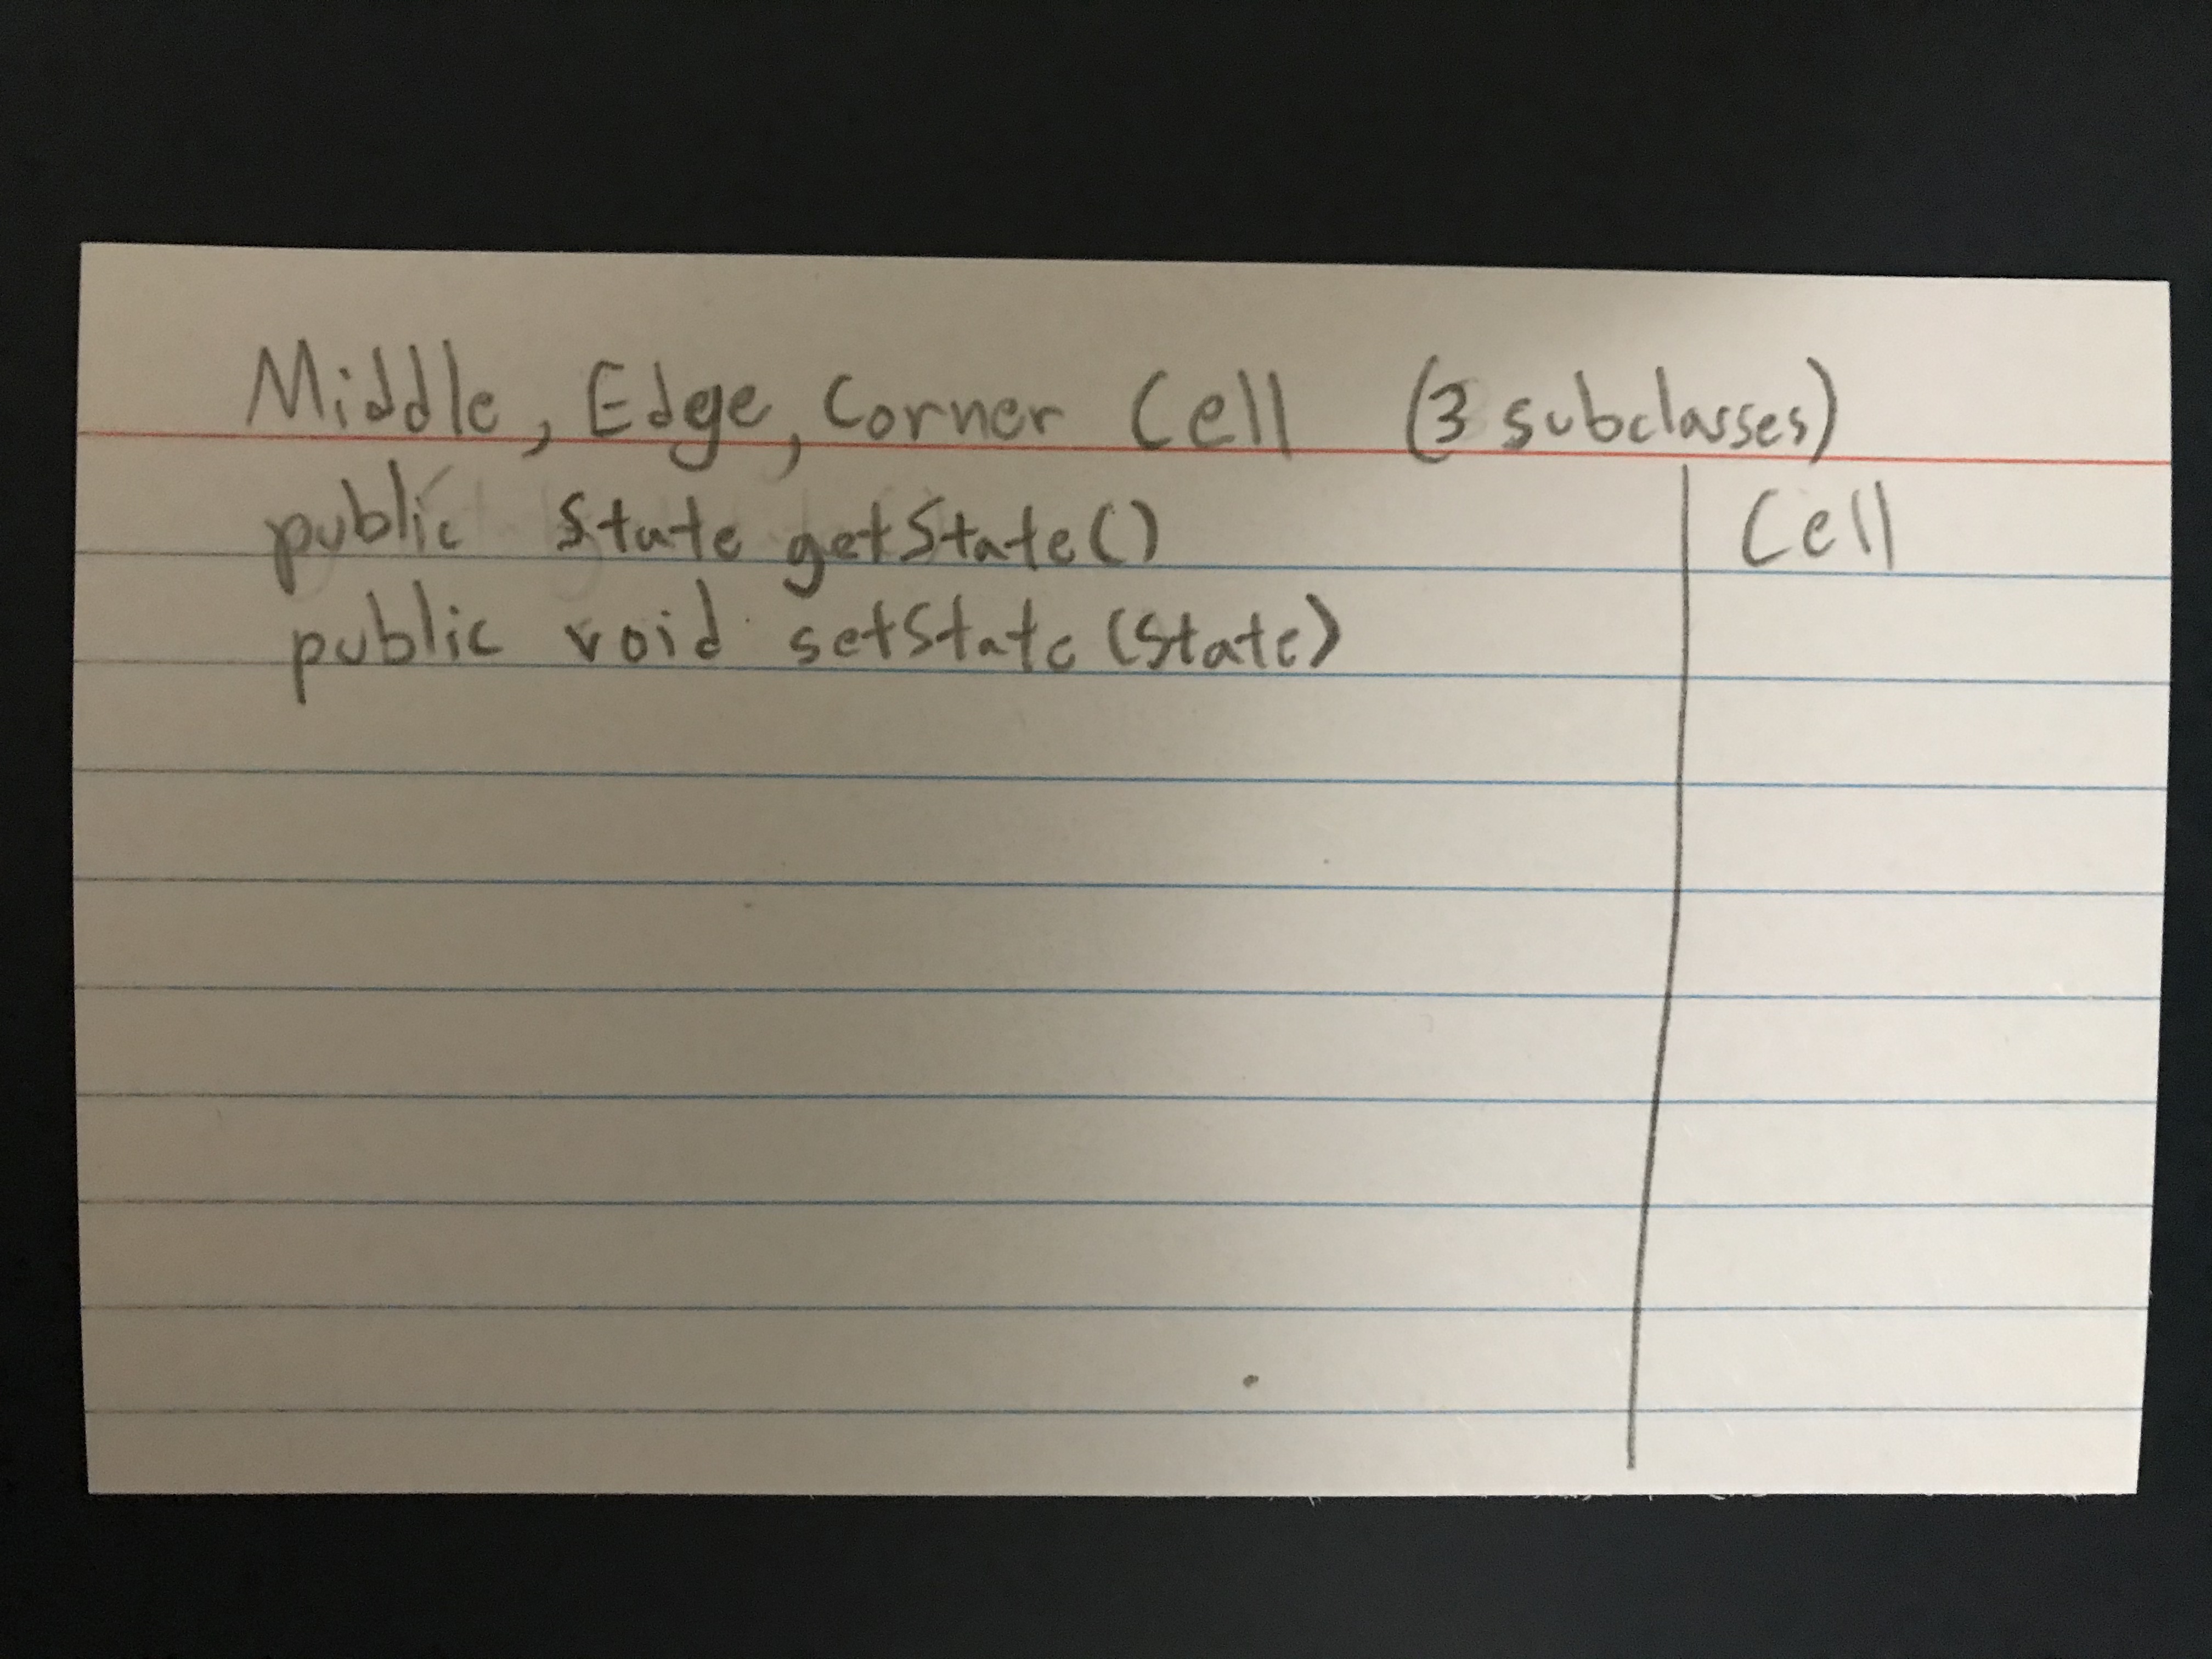 Middle, Edge, Corner Cell (3 subclasses)
public State getState()
public void setState(State)
Cell